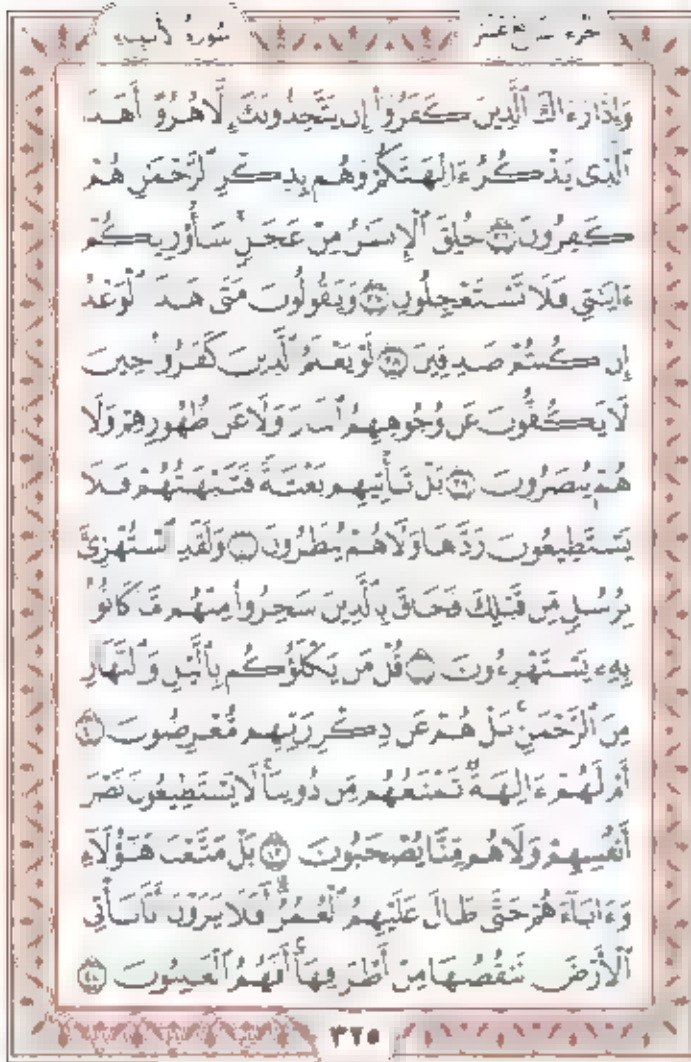 سورة الأنبياء
الجزء السابع عشر
وَإِذَا رَءَاكَ ٱلَّذِينَ كَفَرُوٓا۟ إِن يَتَّخِذُونَكَ إِلَّا هُزُوًا أَهَـٰذَا
ٱلَّذِى يَذْكُرُ ءَالِهَتَكُمْ وَهُم بِذِكْرِ ٱلرَّحْمَـٰنِ هُمْ
كَـٰفِرُونَ ٣٦ خُلِقَ ٱلْإِنسَـٰنُ مِنْ عَجَلٍ سَأُو۟رِيكُمْ
ءَايَـٰتِى فَلَا تَسْتَعْجِلُونِ ٣٧ وَيَقُولُونَ مَتَىٰ هَـٰذَا ٱلْوَعْدُ
إِن كُنتُمْ صَـٰدِقِينَ ٣٨ لَوْ يَعْلَمُ ٱلَّذِينَ كَفَرُوا۟ حِينَ
لَا يَكُفُّونَ عَن وُجُوهِهِمُ ٱلنَّارَ وَلَا عَن ظُهُورِهِمْ وَلَا
هُمْ يُنصَرُونَ ٣٩ بَلْ تَأْتِيهِم بَغْتَةً فَتَبْهَتُهُمْ فَلَا
يَسْتَطِيعُونَ رَدَّهَا وَلَا هُمْ يُنظَرُونَ ٤٠ وَلَقَدِ ٱسْتُهْزِئَ
بِرُسُلٍ مِّن قَبْلِكَ فَحَاقَ بِٱلَّذِينَ سَخِرُوا۟ مِنْهُم مَّا كَانُوا۟
بِهِۦ يَسْتَهْزِءُونَ ٤١ قُلْ مَن يَكْلَؤُكُم بِٱلَّيْلِ وَٱلنَّهَارِ
مِنَ ٱلرَّحْمَـٰنِ بَلْ هُمْ عَن ذِكْرِ رَبِّهِم مُّعْرِضُونَ ٤٢
أَمْ لَهُمْ ءَالِهَةٌ تَمْنَعُهُم مِّن دُونِنَا لَا يَسْتَطِيعُونَ نَصْرَ
أَنفُسِهِمْ وَلَا هُم مِّنَّا يُصْحَبُونَ ٤٣ بَلْ مَتَّعْنَا هَـٰٓؤُلَآءِ
وَءَابَآءَهُمْ حَتَّىٰ طَالَ عَلَيْهِمُ ٱلْعُمُرُ أَفَلَا يَرَوْنَ أَنَّا نَأْتِى
ٱلْأَرْضَ نَنقُصُهَا مِنْ أَطْرَافِهَآ أَفَهُمُ ٱلْغَـٰلِبُونَ ٤٤
٣٢٥